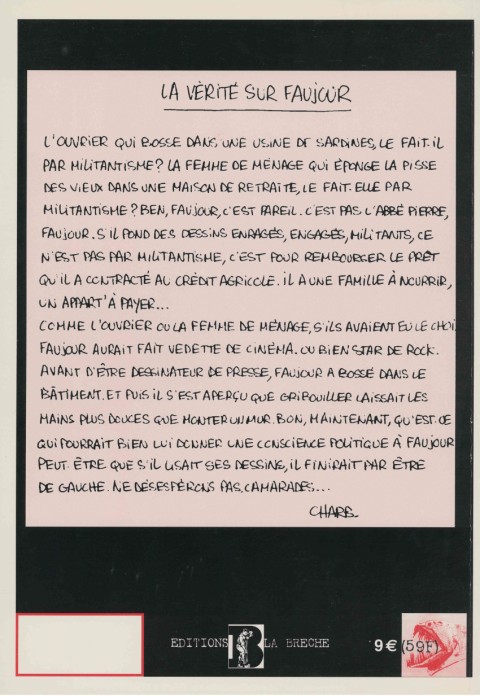 LA VÉRITÉ SUR FAUJOUR
L'OUVRIER QUI BOSSE DANS UNE USINE DE SARDINES, LE FAIT-IL
PAR MILITANTISME? LA FEMME DE MÉNAGE QUI ÉPONGE LA PISSE
DES VIEUX DANS UNE MAISON DE RETRAITE, LE FAIT-ELLE PAR
MILITANTISME? BEN, FAUJOUR, C'EST PAREIL. C'EST PAS L'ABBÉ PIERRE,
FAUJOUR. S'IL POND DES DESSINS ENRAGÉS, ENGAGÉS, MILITANTS, CE
N'EST PAS PAR MILITANTISME, C'EST POUR REMBOURGER LE PRÊT
QU'IL A CONTRACTÉ AU CRÉDIT AGRICOLE. IL A UNE FAMILLE À NOURRIR,
UN APPART' À PAYER...
COMME L'OUVRIER OU LA FEMME DE MÉNAGE, S'ILS AVAIENT EU LE CHOI
FAUJOUR AURAIT FAIT VEDETTE DE CINÉMA. OU BIEN STAR DE ROCK.
AVANT D'ÊTRE DESSINATEUR DE PRESSE, FAUJOUR A BOSSÉ DANS LE
BÂTIMENT. ET PUIS IL S'EST APERÇU QUE GRIBOUILLER LAISSAIT LES
MAINS PLUS DOUCES QUE MONTER UN MUR. BON, MAINTENANT, QU'EST-CE
QUI POURRAIT BIEN LUI DONNER UNE CONSCIENCE POLITIQUE À FAUJOUR
PEUT-ÊTRE QUE S'IL LISAIT SES DESSINS, IL FINIRAIT PAR ÊTRE
DE GAUCHE. NE DÉSESPÉRONS PAS, CAMARADES...
CHARB
EDITIONS LA BRECHE
9€ (59F)